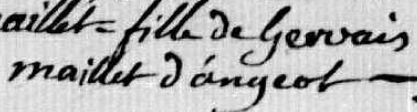 aillet = fille de Gervais
maillet d'ángeot —